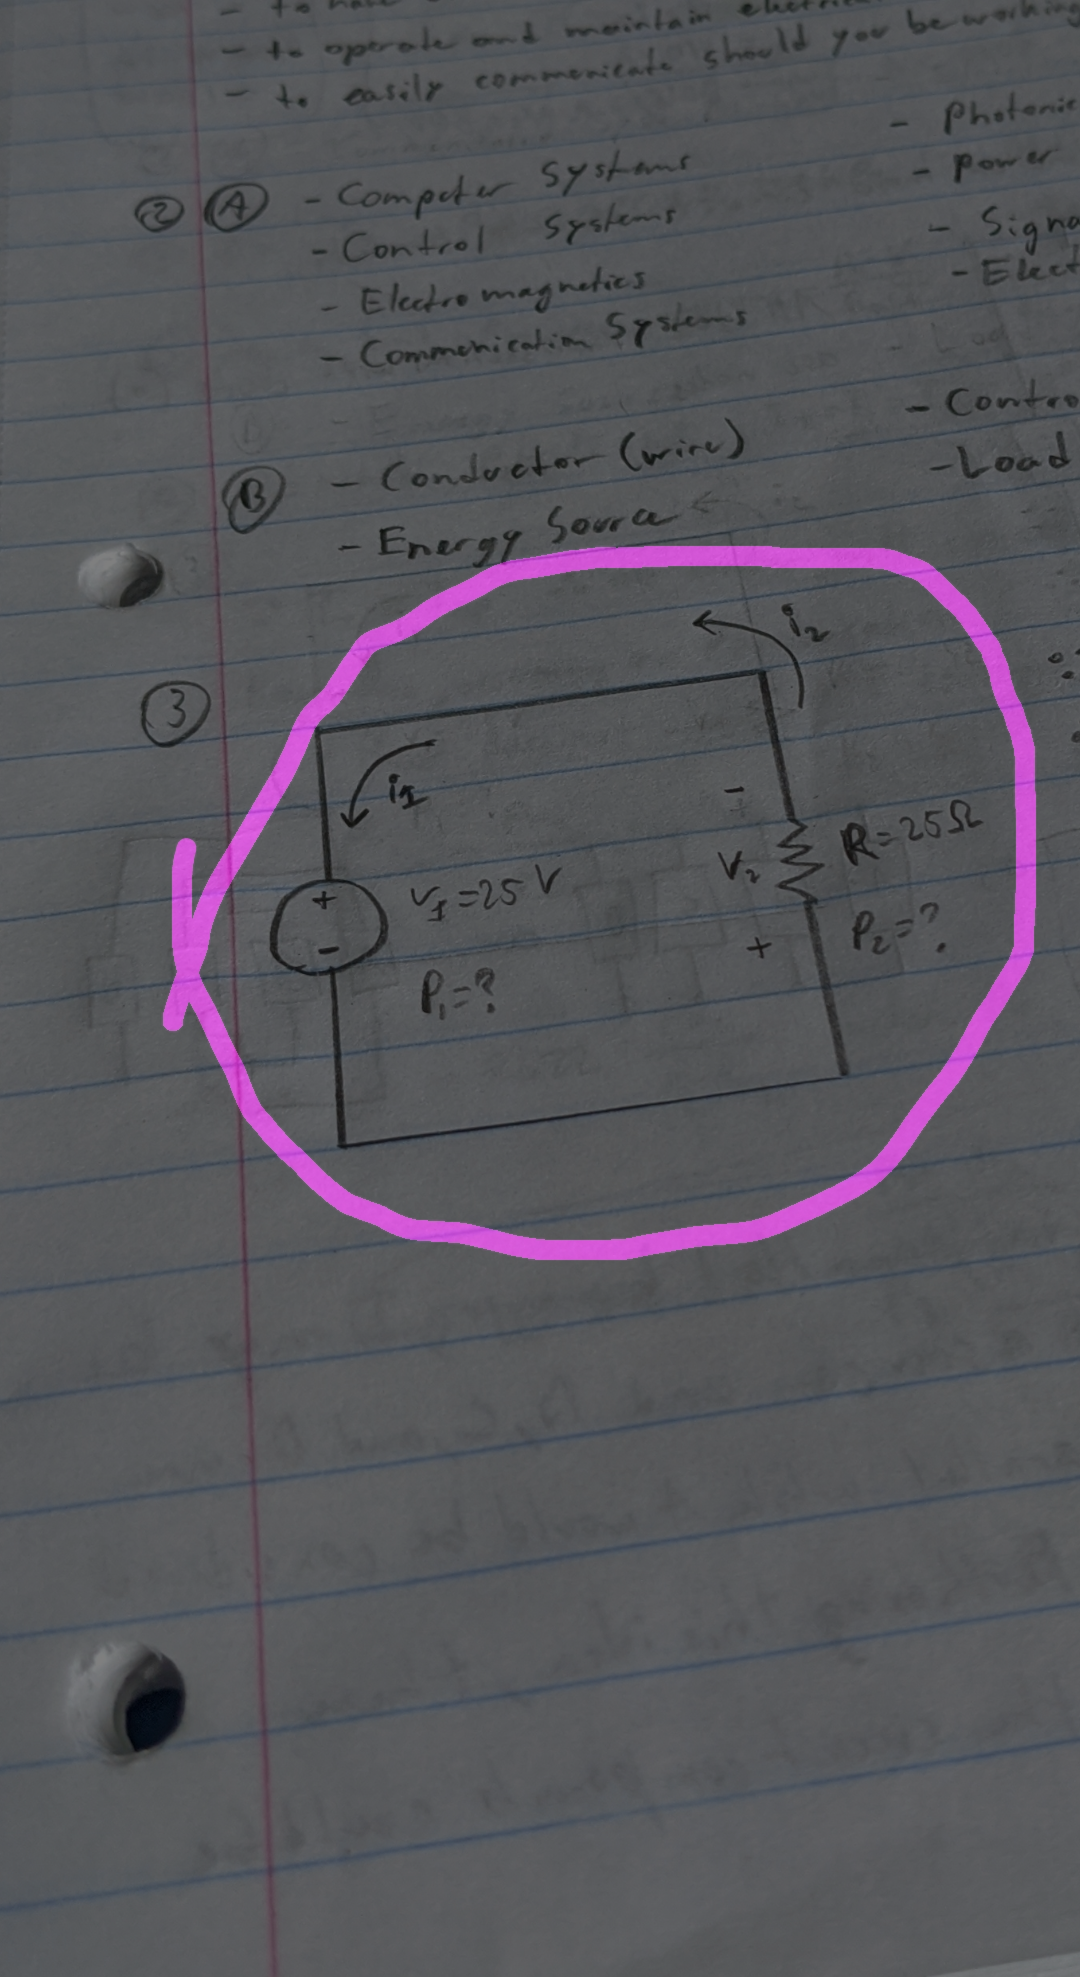 - to have
- to operate and maintain
- to easily commenicate should you be working
② Ⓐ - Computer Systems
- Control Systems
- Electromagnetics
- Commonication Systems
- Photonic
- Power
- Signa
- Elect
Ⓑ - Conductor (wire)
- Energy Source
- Contro
- Load
③
i₂
i₁
-
R=25Ω
V₂
+
-
V₁=25 V
+
P₂=?
P₁=?